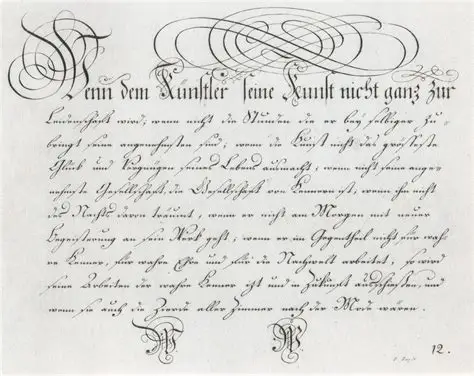 Wenn dem Künstler seine Kunst nicht ganz zur
Leidenschaft wird; wenn nicht die Stunden die er bey selbiger zu-
bringt seine angenehmsten sind; wenn die Kunst nicht das grösseste
Glück und Vergnügen seines Lebens ausmacht; wenn nicht seine ange-
nehmste Gesellschaft, die Gesellschaft von Kennern ist; wenn ihn nicht
des Nachts davon träumt, wenn er nicht am Morgen mit neuer
Begeisterung an sein Werk geht; wenn er im Gegentheil nicht für wah-
re Kenner, für wahre Ehre und für die Nachwelt arbeitet, so wird
seine Arbeiten der wahre Kenner izt und in Zukunft und
wenn sie auch die Zierde aller Zimmer nach der Mode wären.
12.